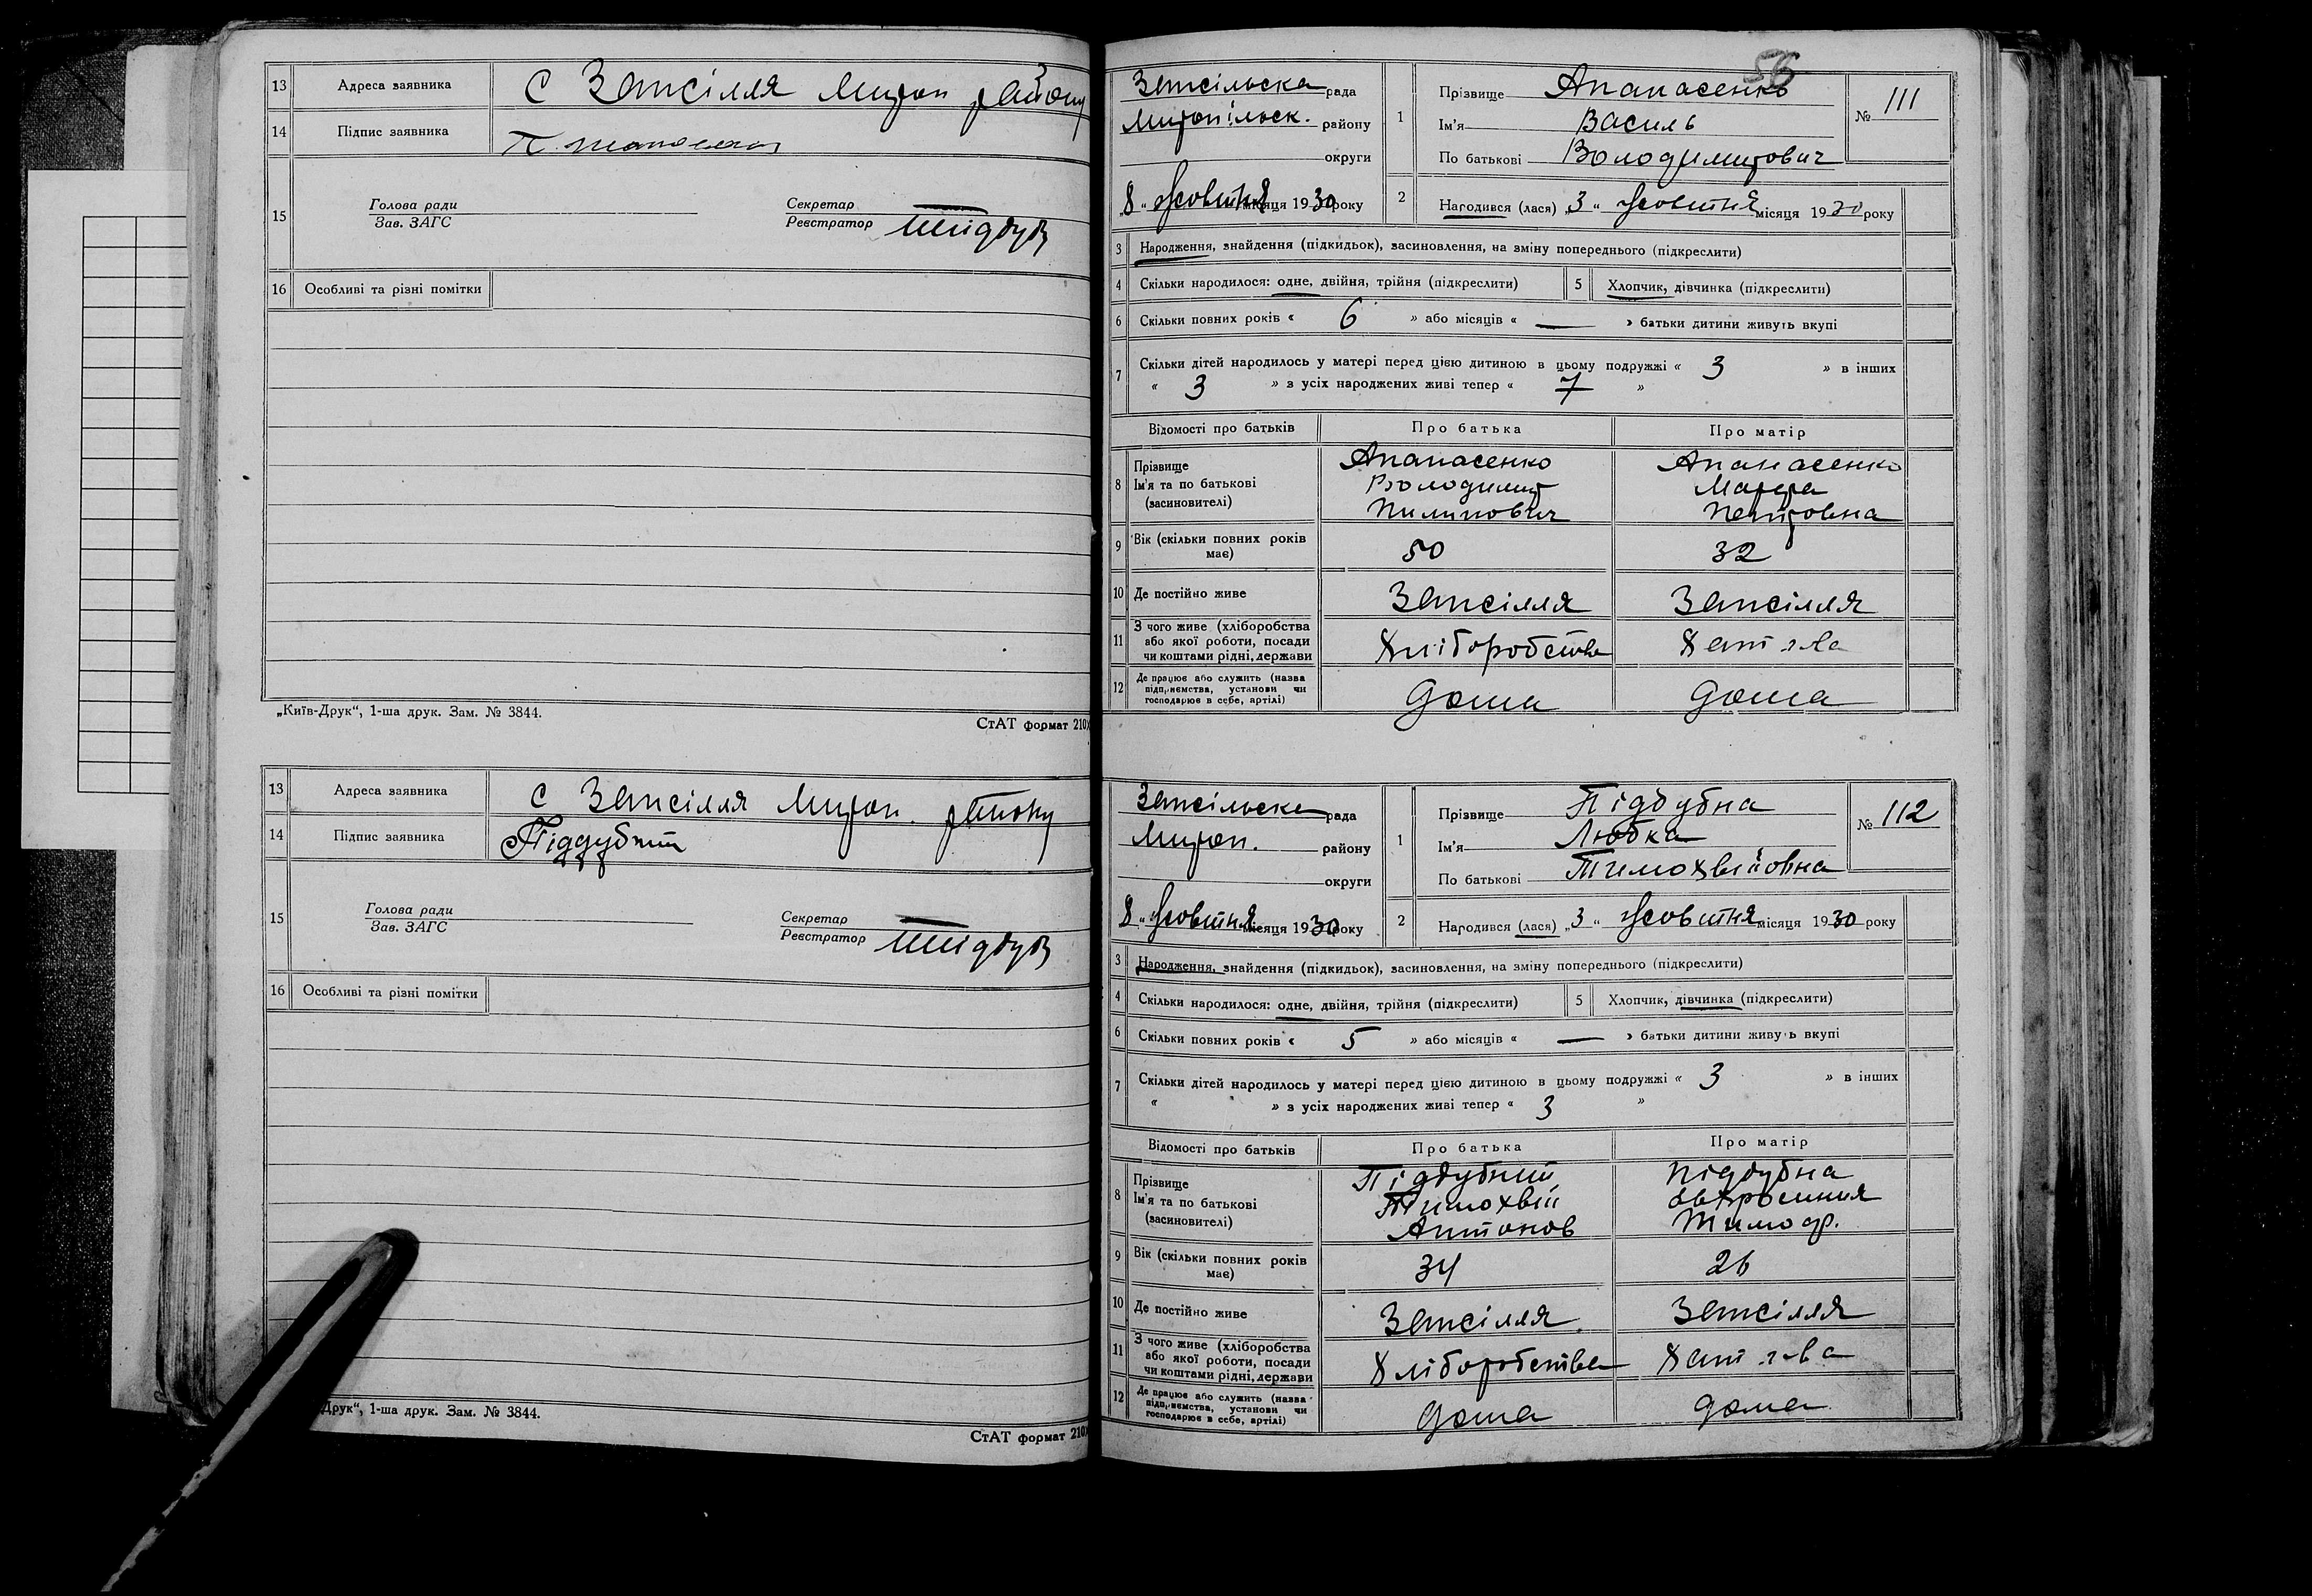 13 Адреса заявника С Запсілля Мироп району
14 Підпис заявника
15 Голова ради
Зав. ЗАГС
Секретар
Реєстратор
16 Особливі та різні помітки
„Київ-Друк“, 1-ша друк. Зам. № 3844.
СтАТ формат 210
13 Адреса заявника С Запсілля Мироп. району
14 Підпис заявника Піддубний
15 Голова ради
Зав. ЗАГС
Секретар
Реєстратор
16 Особливі та різні помітки
Друк“, 1-ша друк. Зам. № 3844.
СтАТ формат 210
56
Запсільська рада
Миропільск. району
округи
„8“ Жовтня місяця 1930 року
1 Прізвище Апанасенко
Ім'я Василь
По батькові Володимирович
№ 111
2 Народився (лася) „3“ Жовтня місяця 1930 року
3 Народження, знайдення (підкидьок), засиновлення, на зміну попереднього (підкреслити)
4 Скільки народилося: одне, двійня, трійня (підкреслити) 5 Хлопчик, дівчинка (підкреслити)
6 Скільки повних років « 6 » або місяців « — » батьки дитини живуть вкупі
7 Скільки дітей народилось у матері перед цією дитиною в цьому подружжі « 3 » в інших
« 3 » з усіх народжених живі тепер « 7 »
Відомості про батьків Про батька Про матір
8 Прізвище Апанасенко Апанасенко
Ім'я та по батькові Володимир Марфа
(засиновителі) Пилипович Петровна
9 Вік (скільки повних років має) 50 32
10 Де постійно живе Запсілля Запсілля
11 З чого живе (хліборобства
або якої роботи, посади Хліборобства
чи коштами рідні, держави
12 Де працює або служить (назва
підприємства, установи чи дома дома
господарює в себе, артілі)
Запсільска рада
Мироп. району
округи
„8“ Жовтня місяця 1930 року
1 Прізвище Підбубна
Ім'я Любка
По батькові Тимохвійовна
№ 112
2 Народився (лася) „3“ Жовтня місяця 1930 року
3 Народження, знайдення (підкидьок), засиновлення, на зміну попереднього (підкреслити)
4 Скільки народилося: одне, двійня, трійня (підкреслити) 5 Хлопчик, дівчинка (підкреслити)
6 Скільки повних років « 5 » або місяців « — » батьки дитини живуть вкупі
7 Скільки дітей народилось у матері перед цією дитиною в цьому подружжі « 3 » в інших
« » з усіх народжених живі тепер « 3 »
Відомості про батьків Про батька Про матір
8 Прізвище Підбубний Підбубна
Ім'я та по батькові Тимохвій
(засиновителі) Антонов Тимоф.
9 Вік (скільки повних років має) 34 26
10 Де постійно живе Запсілля Запсілля
11 З чого живе (хліборобства
або якої роботи, посади Хліборобства
чи коштами рідні, держави
12 Де працює або служить (назва
підприємства, установи чи дома дома
господарює в себе, артілі)